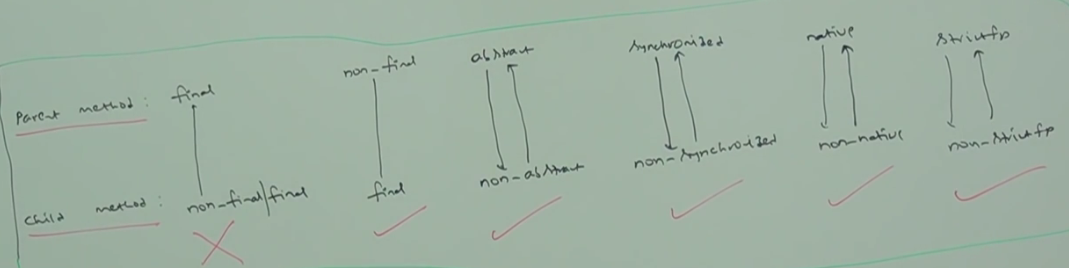 Parent method : final non-final abstract synchronized native strictfp
Child method : non-final/final final non-abstract non-synchronized non-native non-strictfp